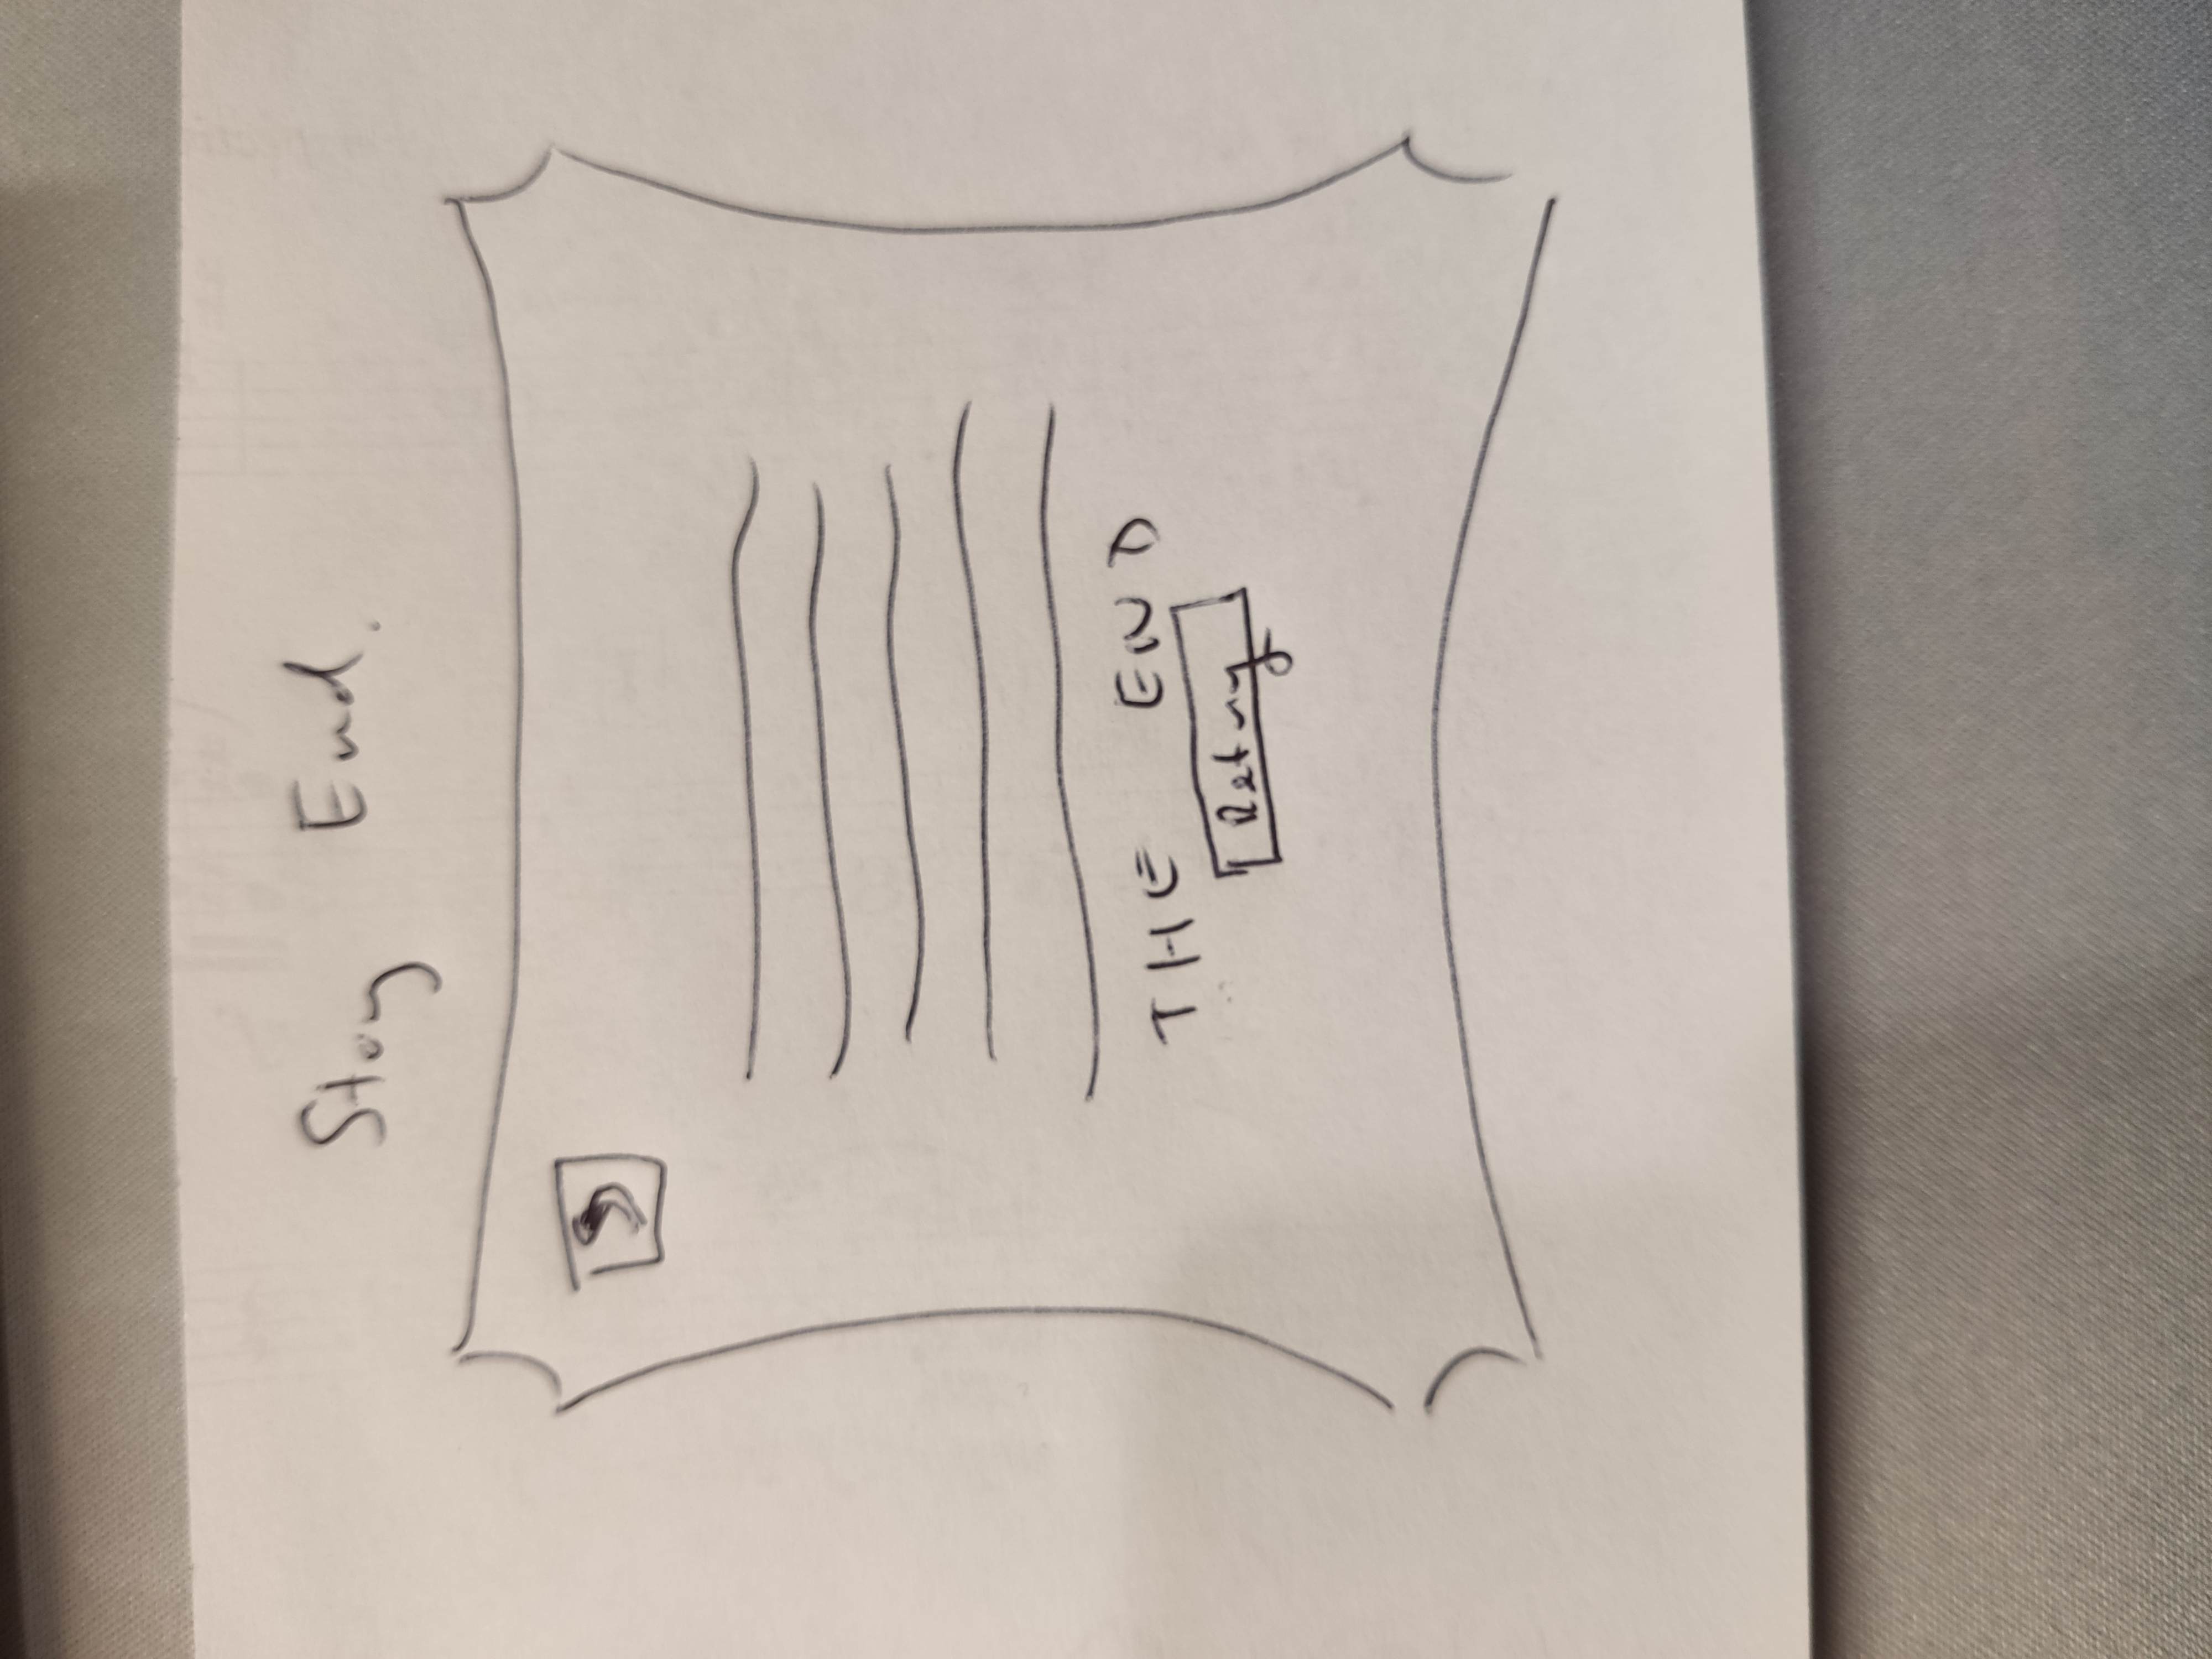 Story End.
THE END
Retry